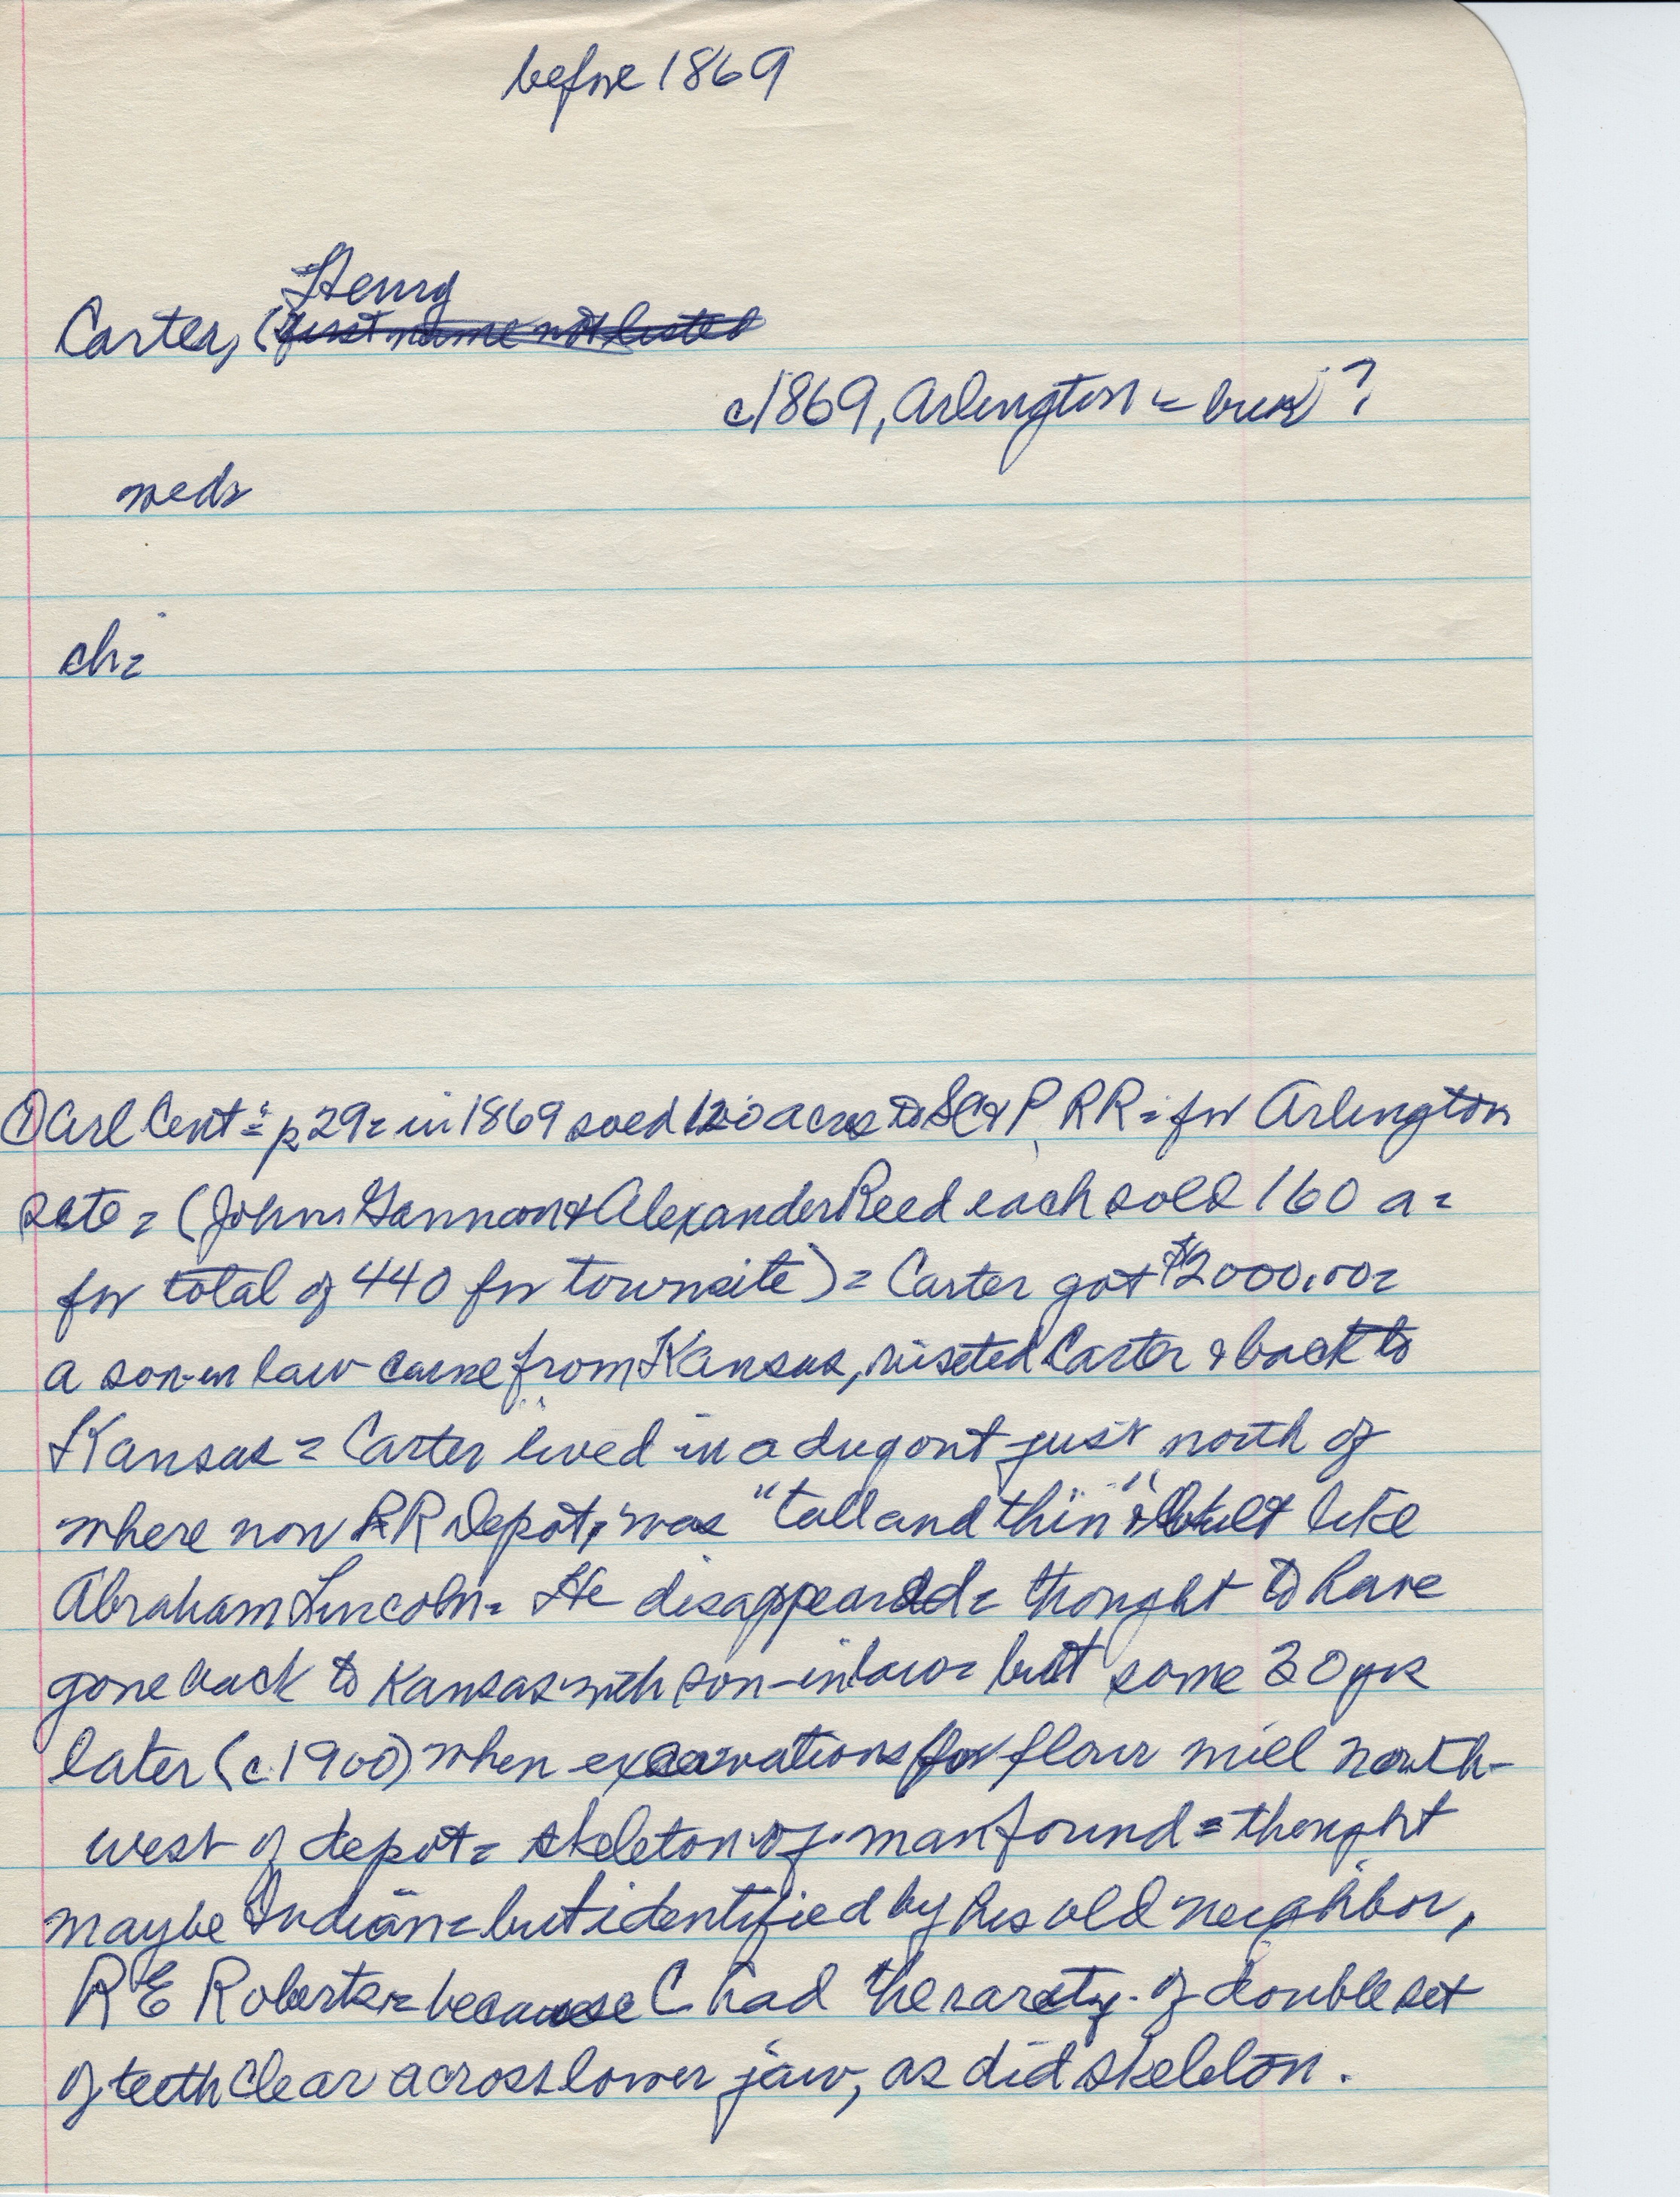 before 1869
Henry
Carter, (first name not listed
c1869, Arlington = bur ?
weds
ch=
① Arl Cent = p 29 = in 1869 sold 120 acres to SC & P RR = for Arlington
site = (John Gannon & Alexander Reed each sold 160 a =
for total of 440 for townsite) = Carter got $2000.00 =
a son-in law came from Kansas, visited Carter & back to
Kansas = Carter lived in a dugout just north of
where now RR Depot, was "tall and thin" & built like
Abraham Lincoln = He disappeared = thought to have
gone back to Kansas with son-in law = but some 30 yrs
later (c.1900) when excavations for flour mill north-
west of depot = skeleton of man found = thought
maybe Indian = but identified by his old neighbor,
R E Roberts = because C had the rarety of double set
of teeth clear across lower jaw, as did skeleton.